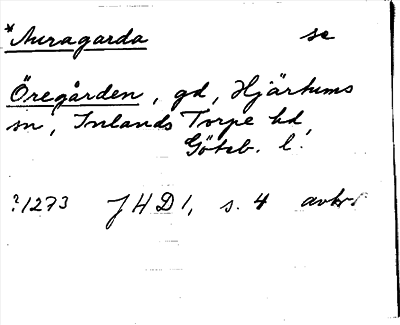 *Auragarda se
Öregården, gd, Hjärtums
sn, Inlands Torpe hd
Göteb. l.
?1273 JHD 1, s. 4 avkr